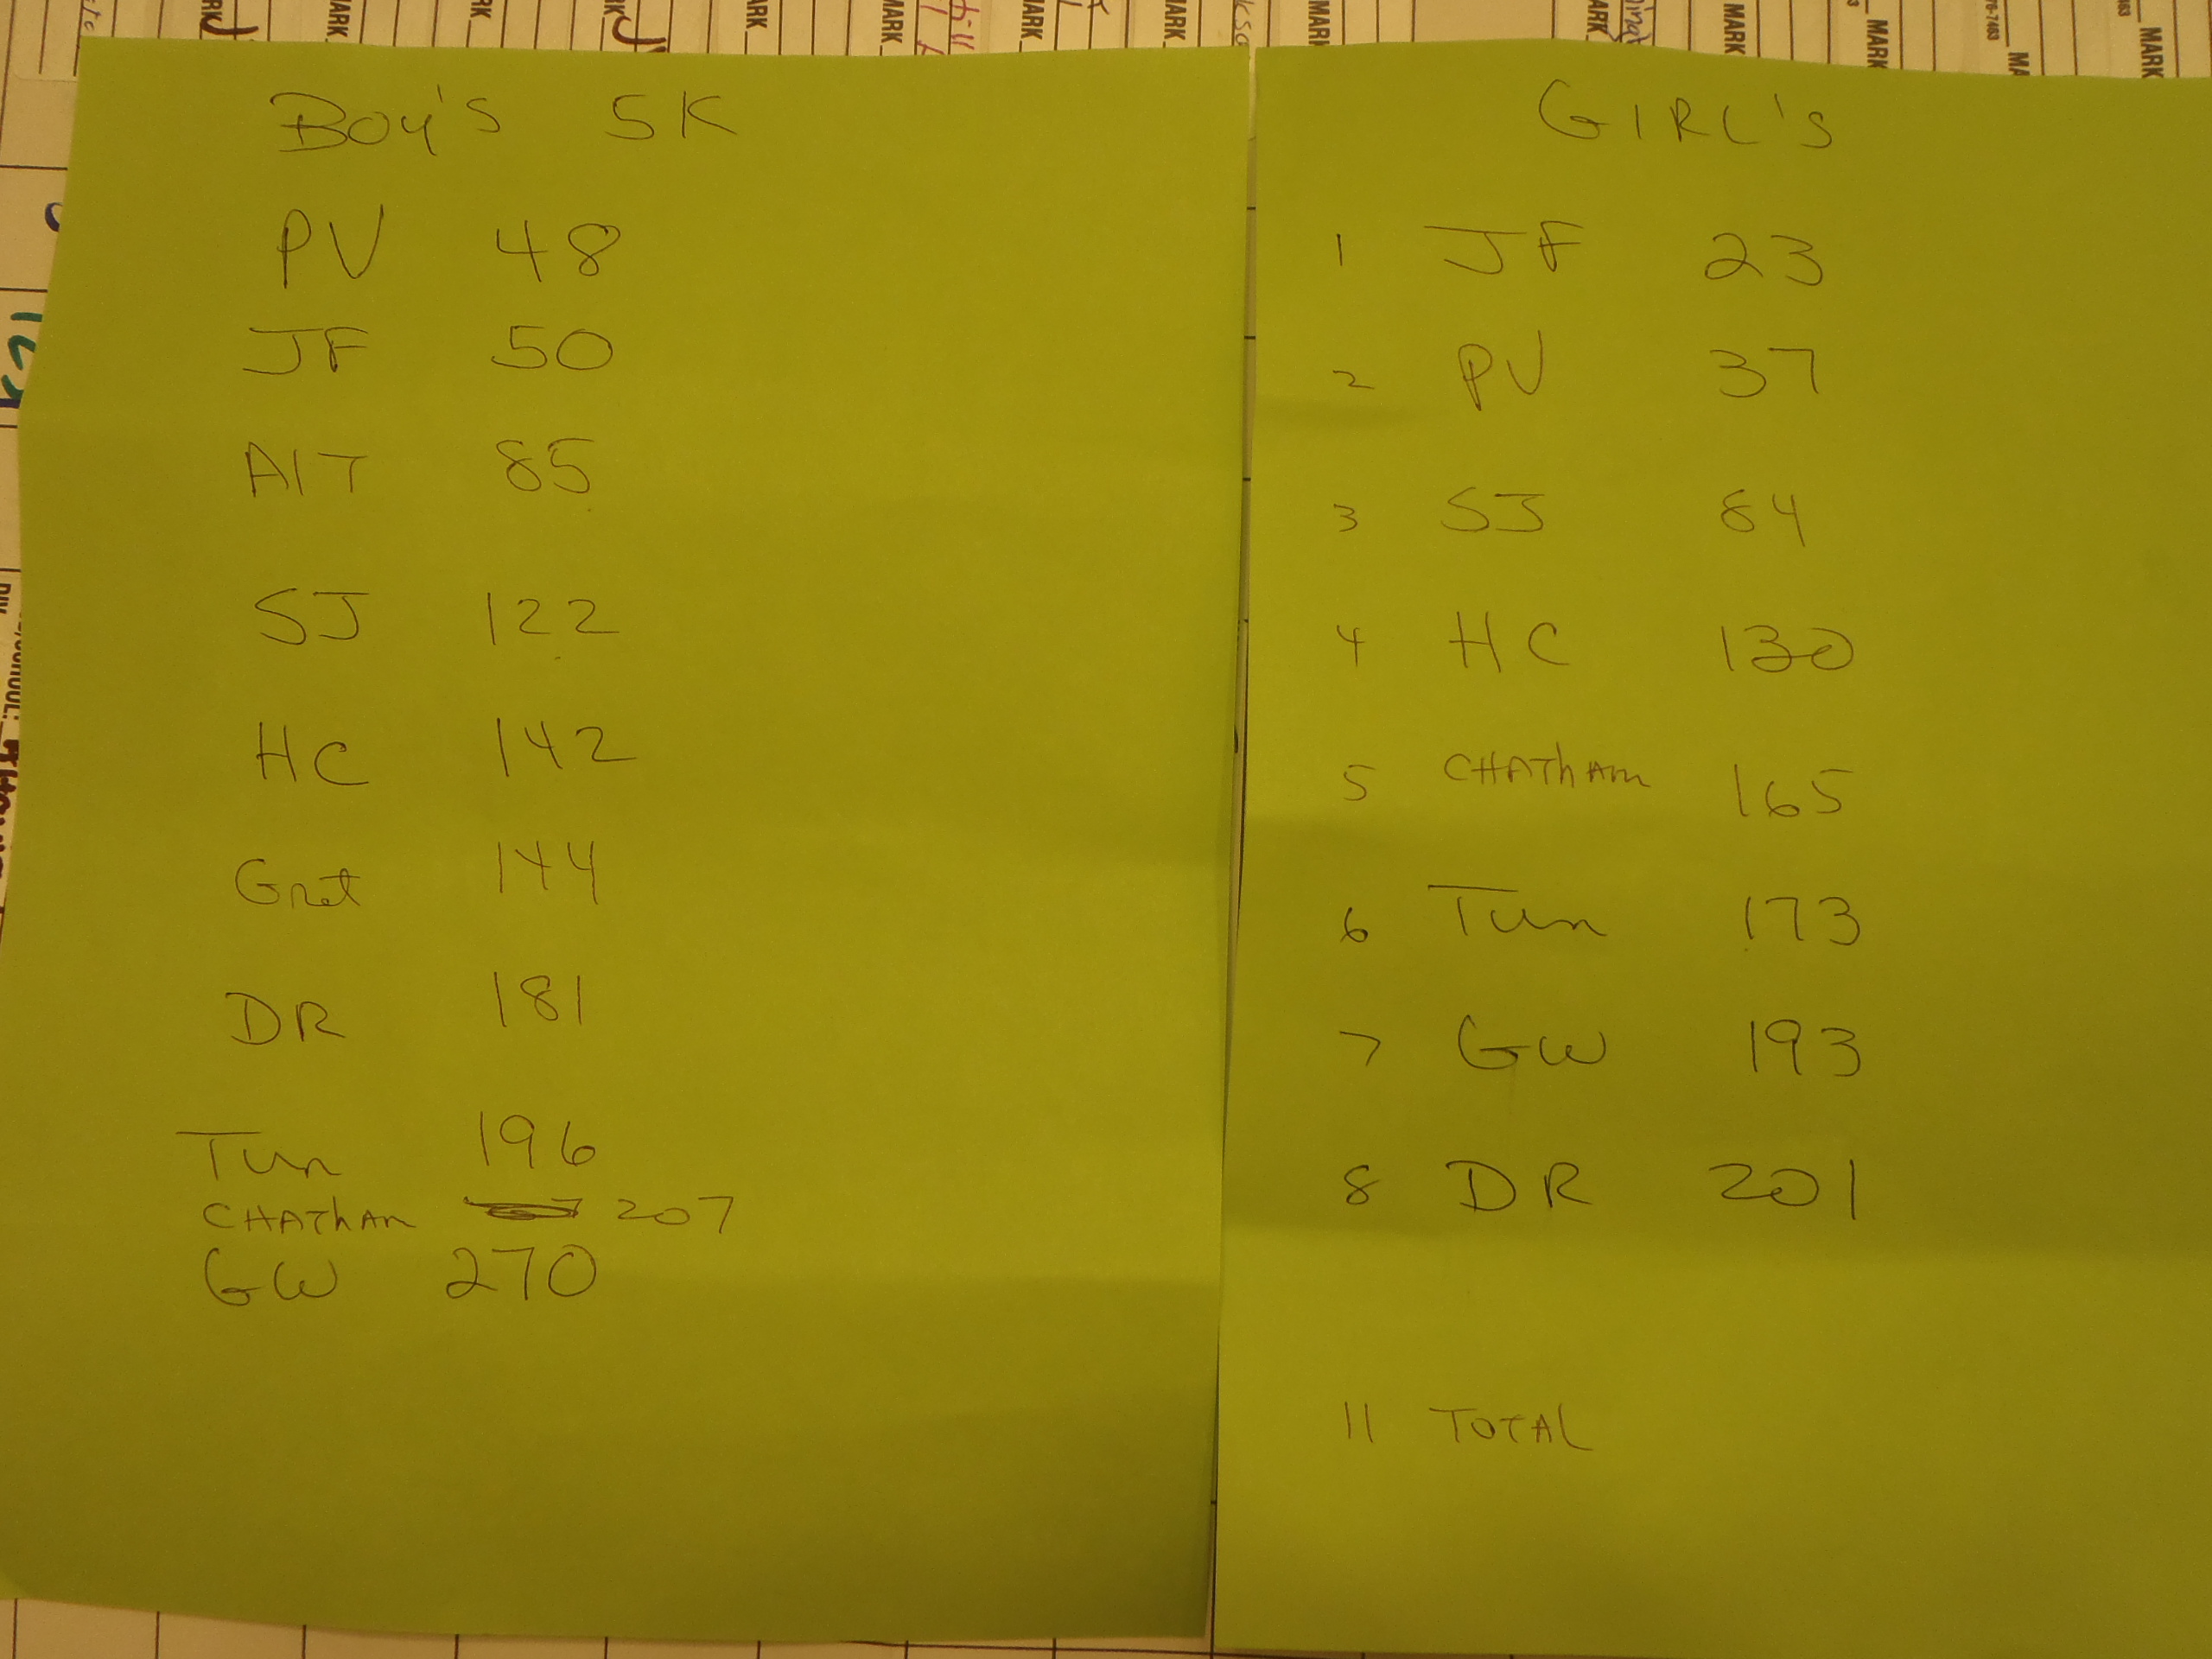 BOY'S 5K
PV 48
JF 50
AIT 85
SJ 122
HC 142
Gret 144
DR 181
Tun 196
CHAThAm 207
GW 270
GIRL'S
1 JF 23
2 PV 37
3 SJ 84
4 HC 130
5 CHAThAm 165
6 Tun 173
7 GW 193
8 DR 201
11 TOTAL
MARK
MARK
MARK
MARK
MARK
MARK
MARK
MARK